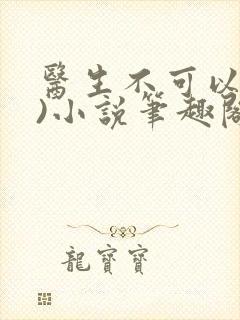 醫生不可以
)小說筆趣閣
龍寶寶